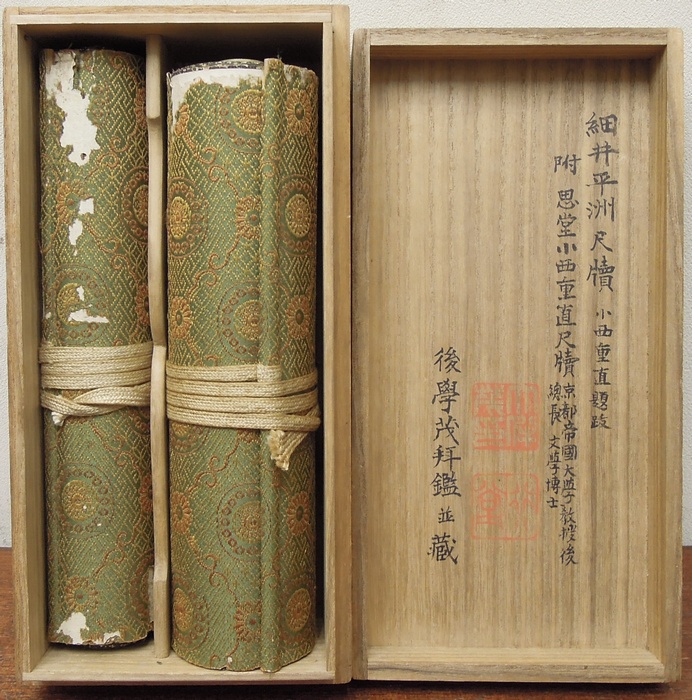 細井平洲尺牘 小西重直題跋
附 思堂小西重直尺牘 京都帝國大學教授後
總長 文學博士
後學茂拜鑑並藏